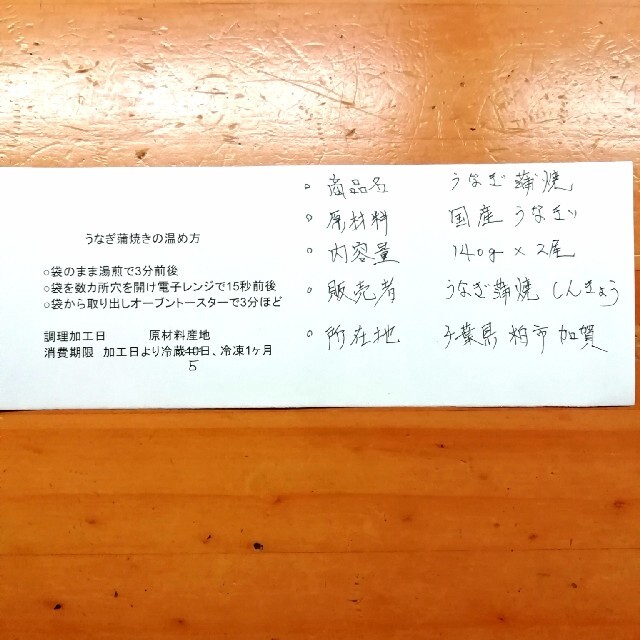 うなぎ蒲焼きの温め方
○袋のまま湯煎で3分前後
○袋を数カ所穴を開け電子レンジで15秒前後
○袋から取り出しオーブントースターで3分ほど
調理加工日 原材料産地
消費期限 加工日より冷蔵10日、冷凍1ヶ月
5
○ 商品名 うなぎ蒲焼
○ 原材料 国産うなぎ
○ 内容量 140g×2尾
○ 販売者 うなぎ蒲焼 しんきょう
○ 所在地 千葉県柏市加賀